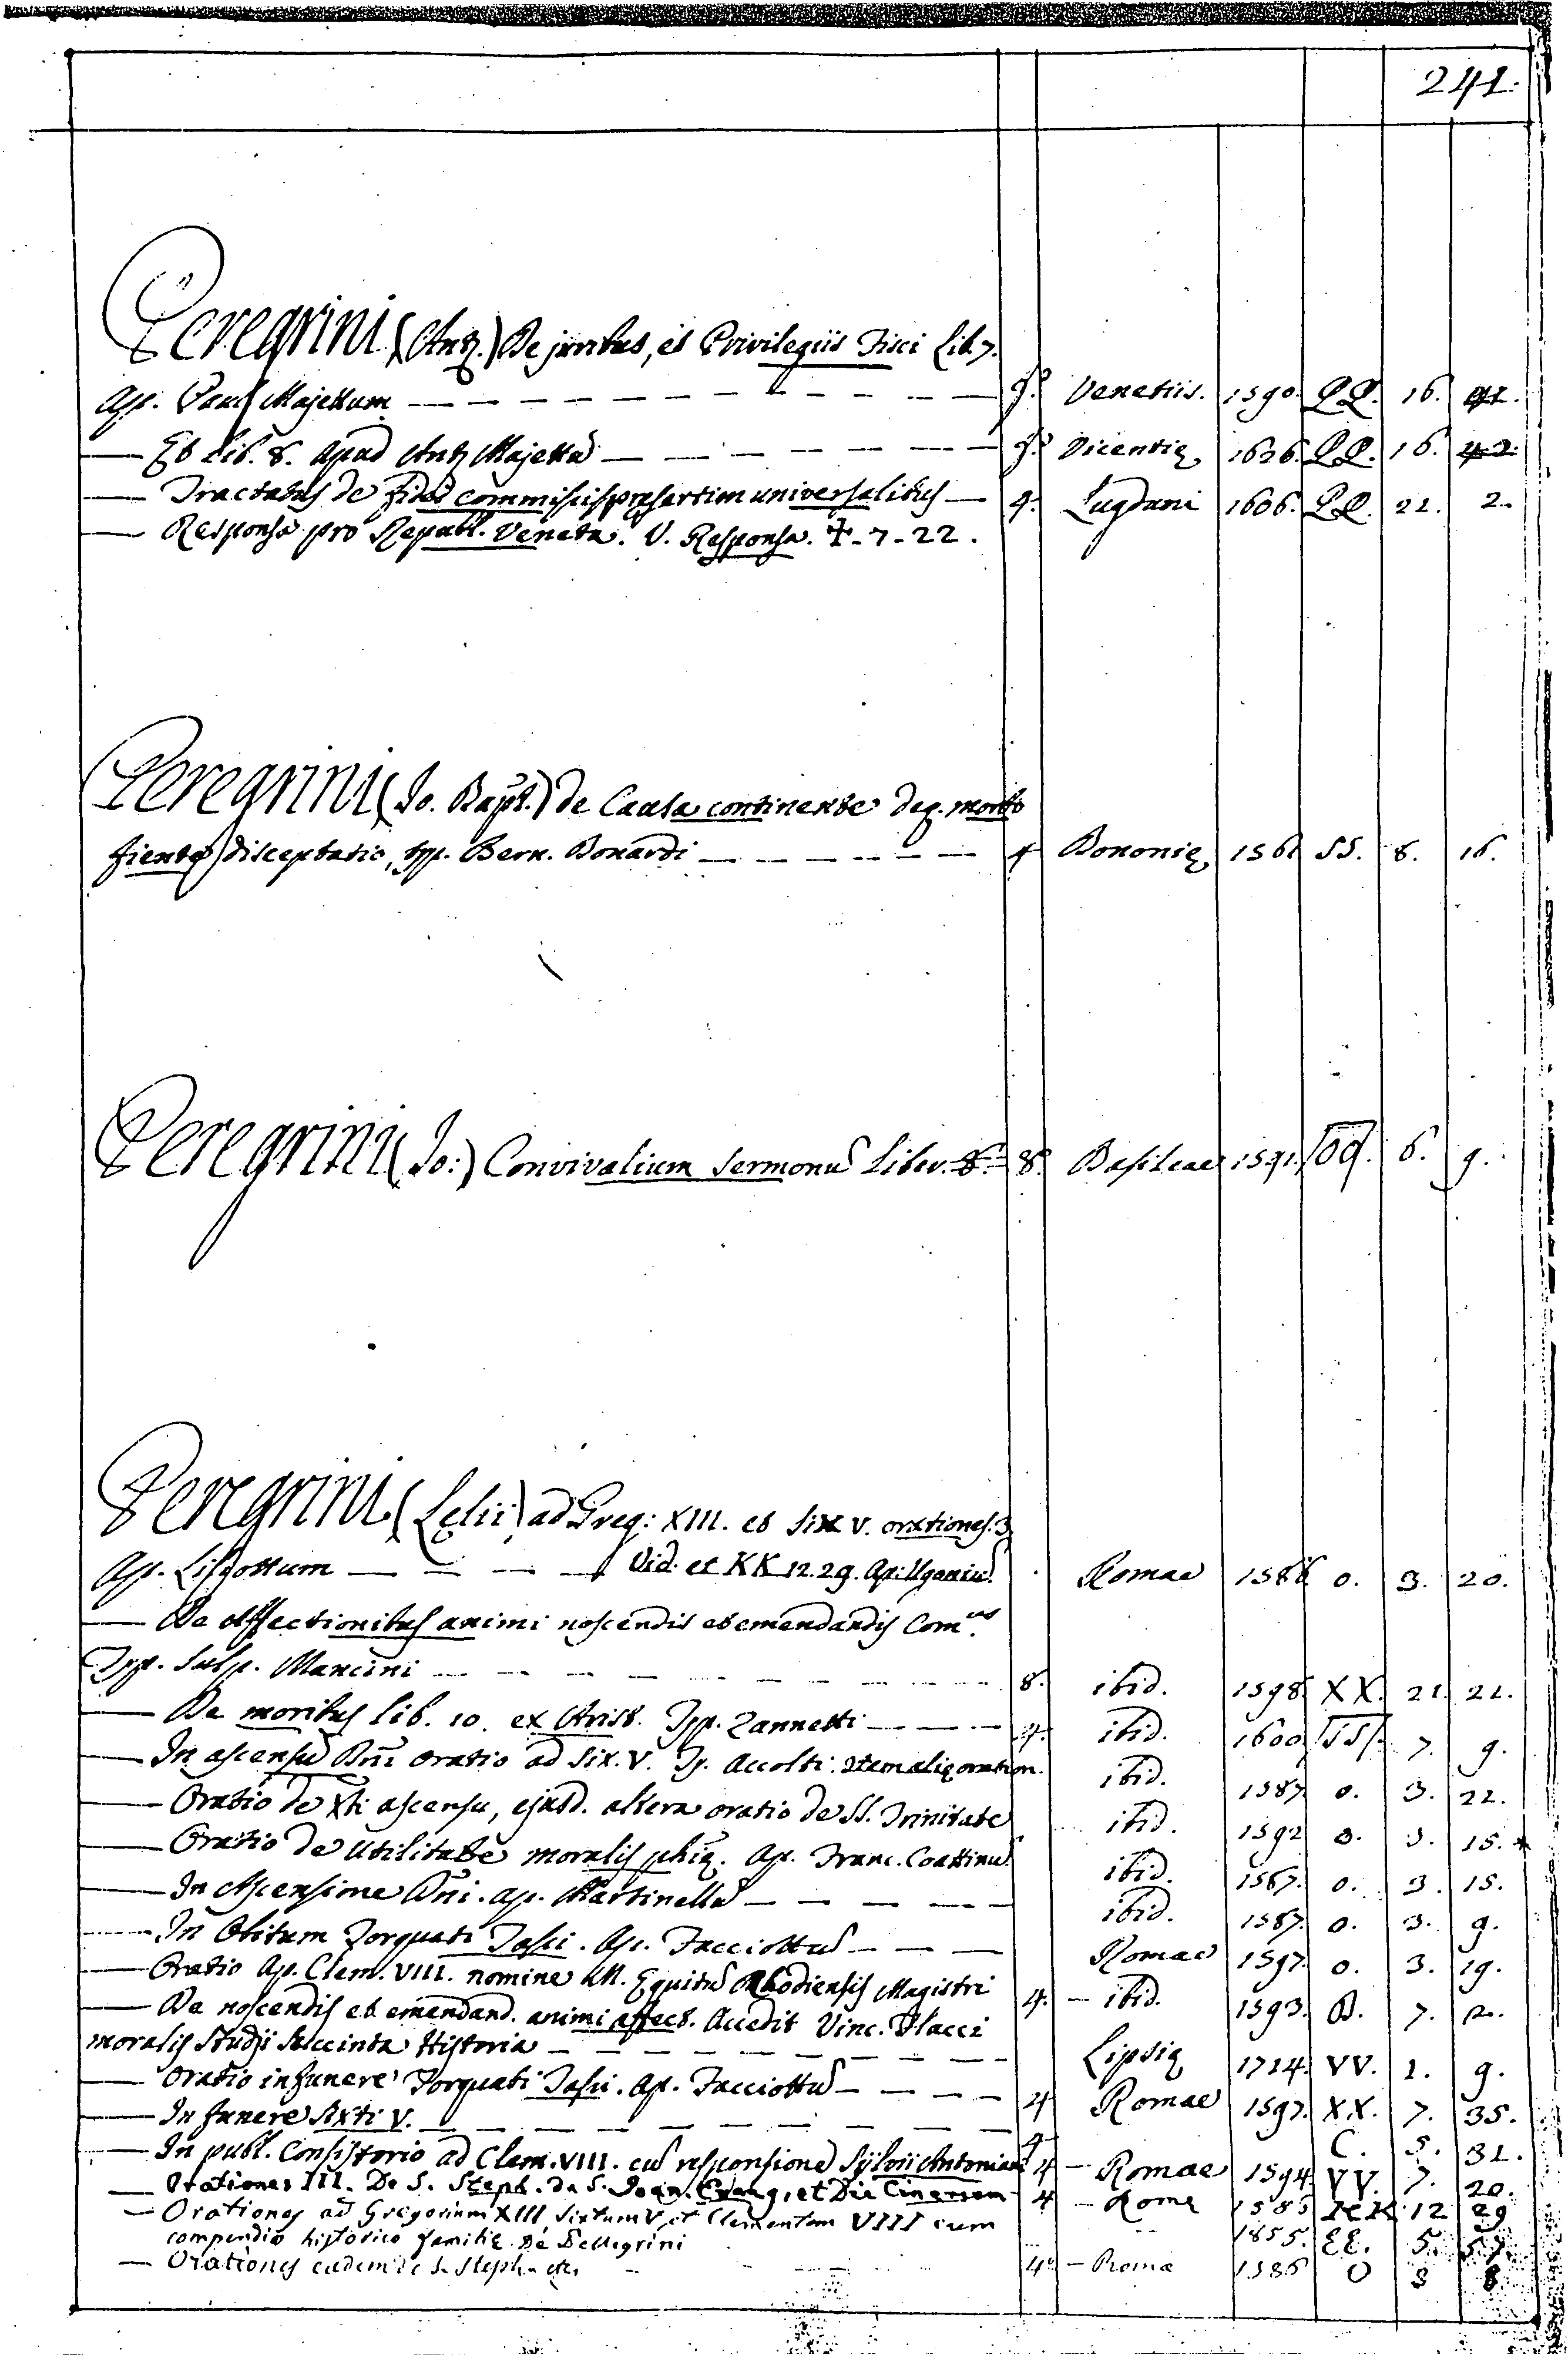 241.
Peregrini (Ant.) De juribus, et Privilegiis Fisci Lib. 7.
Ap. Paul Majettum — f.º Venetiis. 1590. QQ. 16. 41.
— Et Lib. 8. apud Ant. Majettū — f.º Vicentię 1626. QQ. 16. 42.
— Tractatus de fidei commissis præsertim universalibus — 4. Lugduni 1606. QQ. 21. 2.
— Responsa pro Republ. Veneta. V. Responsa. ‡-7-22.
Peregrini (Jo. Bapt.) de Causa continente deq. morbo
fiente disceptatio, typ. Bern. Bonardi — 4 Bononię 156 SS. 8. 16.
Peregrini (Jo:) Convivalium Sermonū Liber. 8. 8. Basileae 1591. 6. 9.
Peregrini (Lelii) ad Greg: XIII. et Six V. orationes. 3
Ap. Lispottum — Vid. et KK 12. 29. Ap. Romae 1586 O. 3. 20.
— De Affectionibus animi noscendis et emendandis Com.us
Typ. Sulp. Mancini — 8. ibid. 1598. XX. 21. 21.
— De moribus lib. 10. ex Arist. Typ. Zannetti — 4. ibid. 1600 SS. 7. 9.
— In ascensū Dn̄i oratio ad Six. V. Ty. Accolti. Item alię oration. ibid. 1587. O. 3. 22.
— Oratio de Xti ascensu, ejusd. altera oratio de SS. Trinitate ibid. 1592 O. 3. 15. *
— Oratio de Utilitate moralis phię. Ap. Franc. Coattinū ibid. 1567. O. 3. 15.
— In Ascensione Dn̄i. ap. Martinellū — ibid. 1587. O. 3. 9.
— In Obitum Torquati Tassi. Ap. Facciottū — Romae 1597. O. 3. 19.
— Oratio Ap. Clem. VIII. nomine M. Equitū Rhodiensis Magistri 4. — ibid. 1593. B. 7. 2.
— De noscendis et emendand. animi affect. Accedit Vinc. Placci
moralis Studji Succinta Historia — Lipsię 1714. VV. 1. 9.
— Oratio in funere Torquati Tassi. Ap. Facciottū — 4 Romae 1597. XX. 7. 35.
— In funere Sixti V. — C. 5. 31.
— In publ. Consistorio ad Clem. VIII. cū responsione Sylvii Antoniani 4 — Romae 1594 VV. 7. 20.
— Orationes III. De S. Steph. de S. Joan. Evang. et Die Cinerum 4 — Romę 1585 KK 12 29
— Orationes ad Gregorium XIII Sixtum V, et Clementem VIII cum
compendio historico familię de Pellegrini 1855. EE. 5. 57.
— Orationes eædem de S. Steph. etc. 4º — Romæ 1586 O 3 8